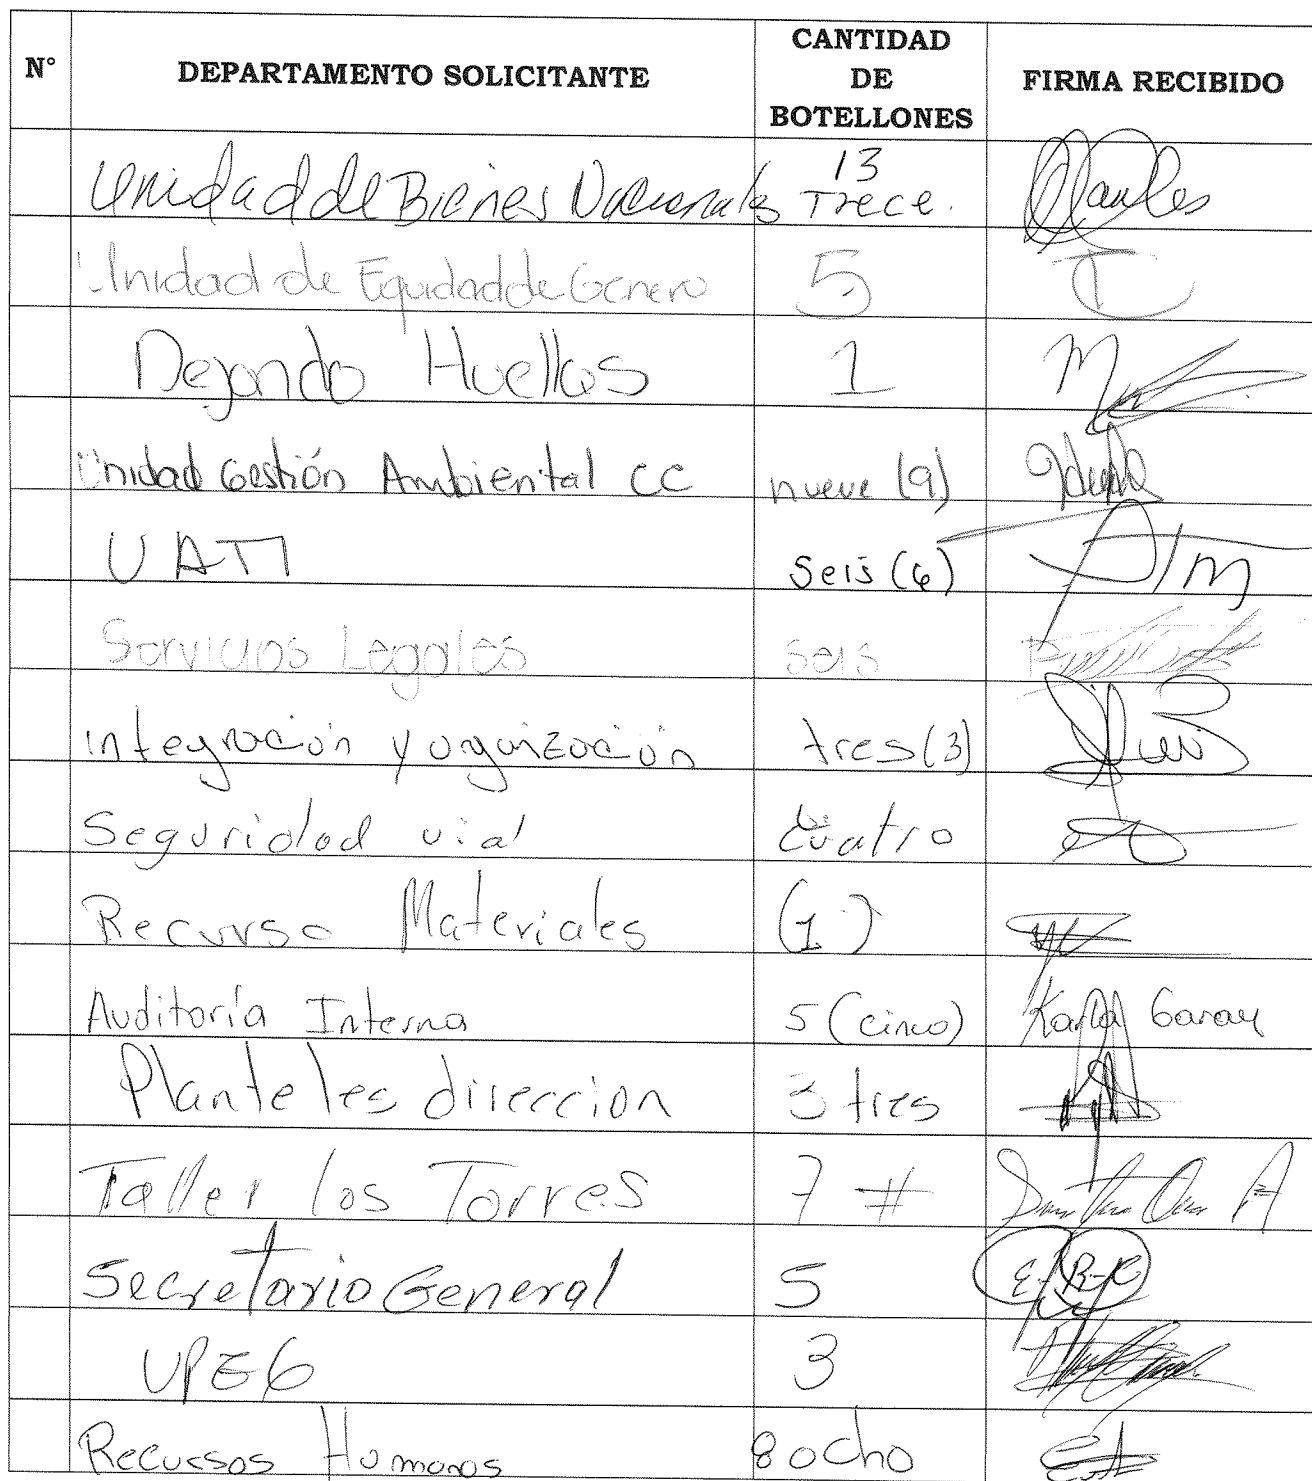 N°
DEPARTAMENTO SOLICITANTE
CANTIDAD
DE
BOTELLONES
FIRMA RECIBIDO
Unidad de Bienes Nacionales
13
Trece.
Unidad de Equidad de Genero 5
Dejando Huellas 1
Unidad Gestión Ambiental CC nueve (9)
UATI seis (6)
Servicios Legales seis
integración y organización tres (3)
Seguridad vial cuatro
Recurso Materiales (1)
Auditoría Interna 5 (cinco) Karla Garay
Planteles direccion 3 tres
Taller los Torres 7 #
Secretario General 5
UPEG 3
Recursos Humanos 8 ocho